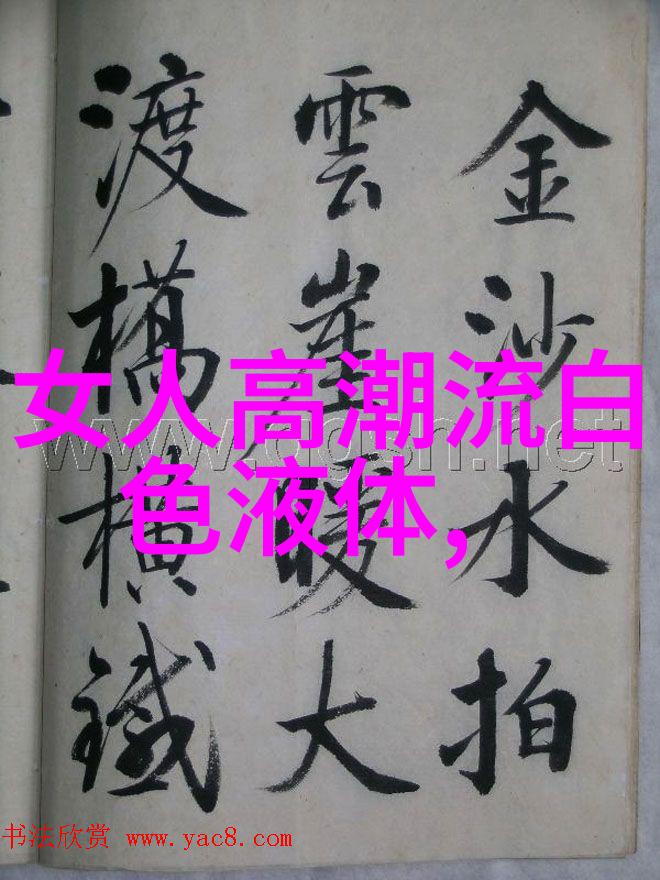 金沙水拍
雲崖暖大
渡橋橫鐵
女人高潮流白
色液体,
书法欣赏 www.yac8.com